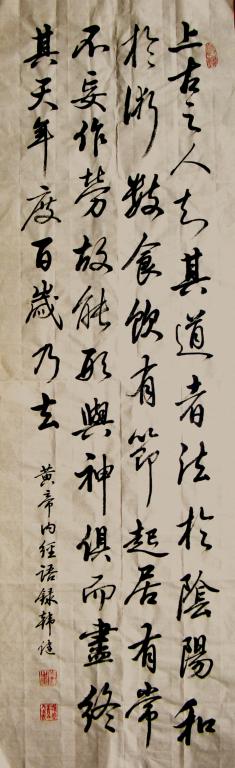 上古之人知其道者法於陰陽和
於術數食飲有節起居有常
不妄作勞故能形與神俱而盡終
其天年度百歲乃去
黃帝內經語錄韓